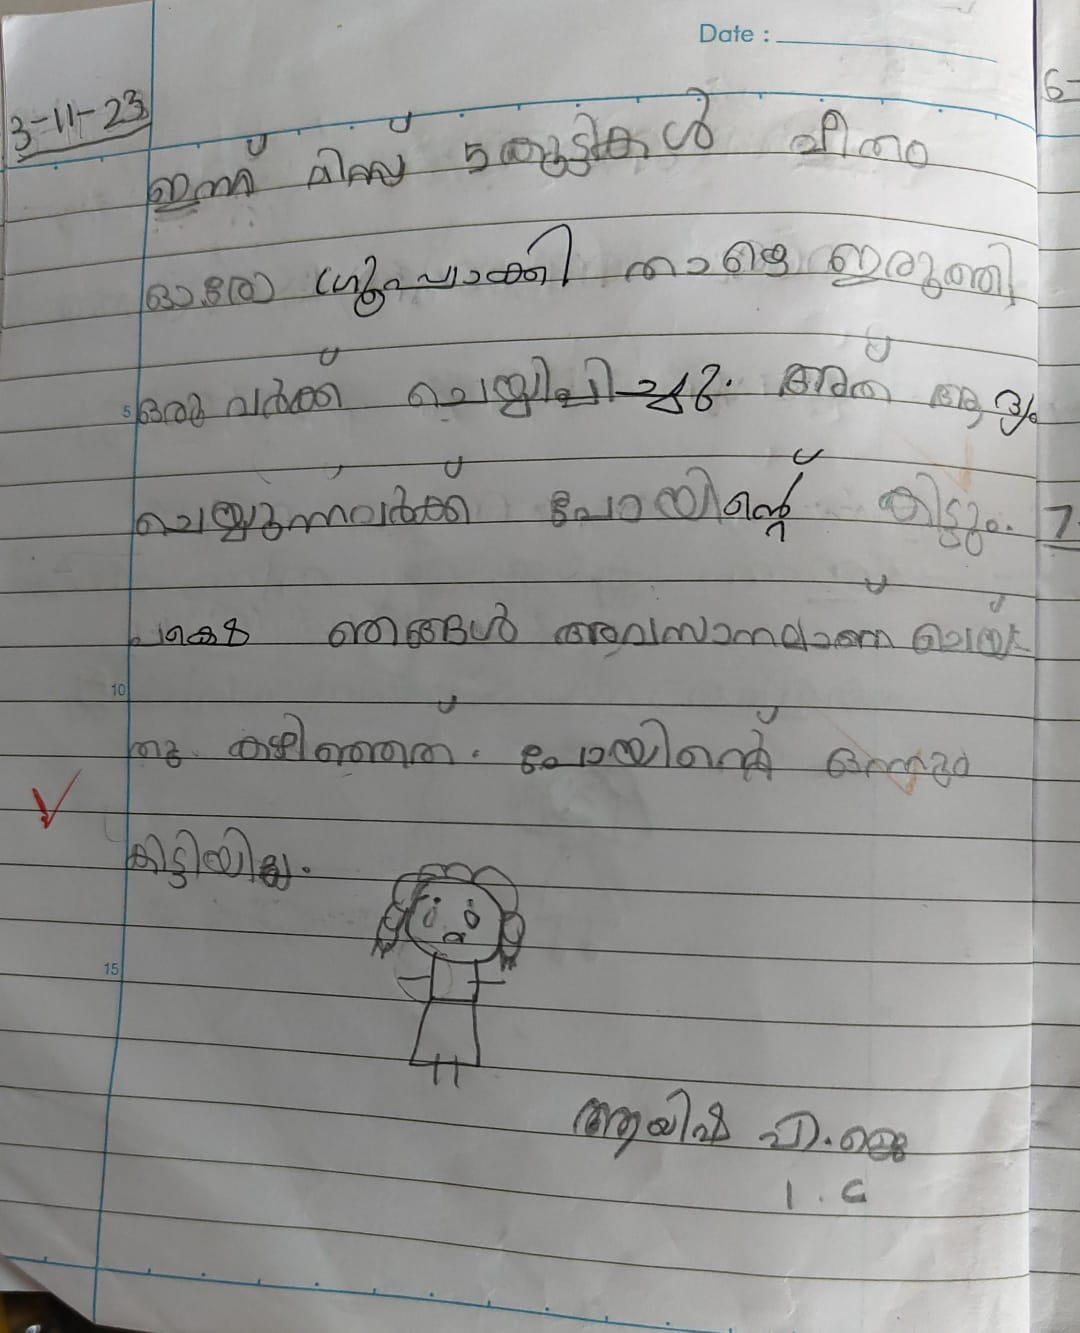 Date :
3-11-23
ഇന്ന് മിസ്സ് 5 കുട്ടികൾ വീതം
ഓരോ ഗ്രൂപ്പാക്കി താഴെ ഇരുത്തി
5
ഒരു വർക്ക് ചെയ്യിപ്പിച്ചു. അത് ആദ്യം
ചെയ്യുന്നവർക്ക് പോയിന്റ് കിട്ടും.
പക്ഷേ ഞങ്ങൾ അവസാനമാണ് ചെയ്ത്
10
തു കഴിഞ്ഞത്. പോയിന്റ് ഒന്നും
കിട്ടിയില്ല.
15
1. C
6-
7